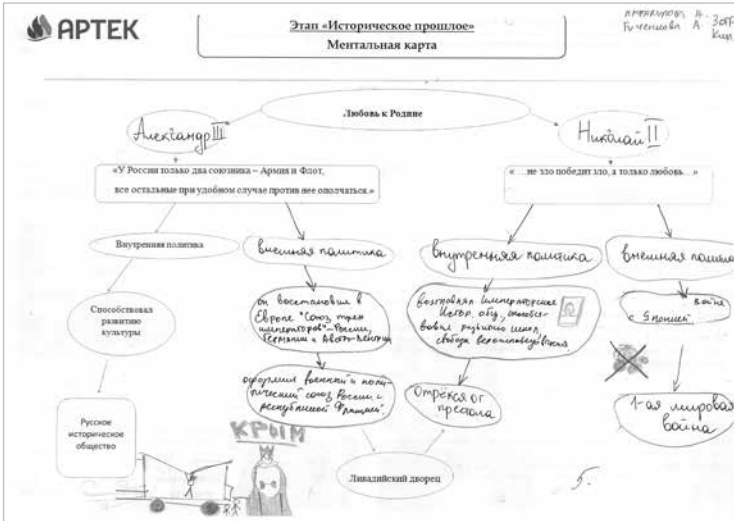 АРТЕК
Этап «Историческое прошлое»
Ментальная карта
Любовь к Родине
Александр III
Николай II
«У России только два союзника – Армия и Флот,
все остальные при удобном случае против нее ополчаться.»
« …не зло победит зло, а только любовь…»
Внутренняя политика
внешняя политика
внутренняя политика
внешняя
Способствовал
развитию
культуры
он восстановил в
Европе "Союз трёх
императоров"-России,
Германии и Австро-Венгрии
возглавлял императорское
Истор. общ., способст-
вовал развитию школ,
свобода вероисповедования.
война
с Японией
оформил военный и поли-
тический союз России с
республикой Францией.
отрёкся от
престола
1-ая мировая
война
Русское
историческое
общество
КРЫМ
Ливадийский дворец
5.